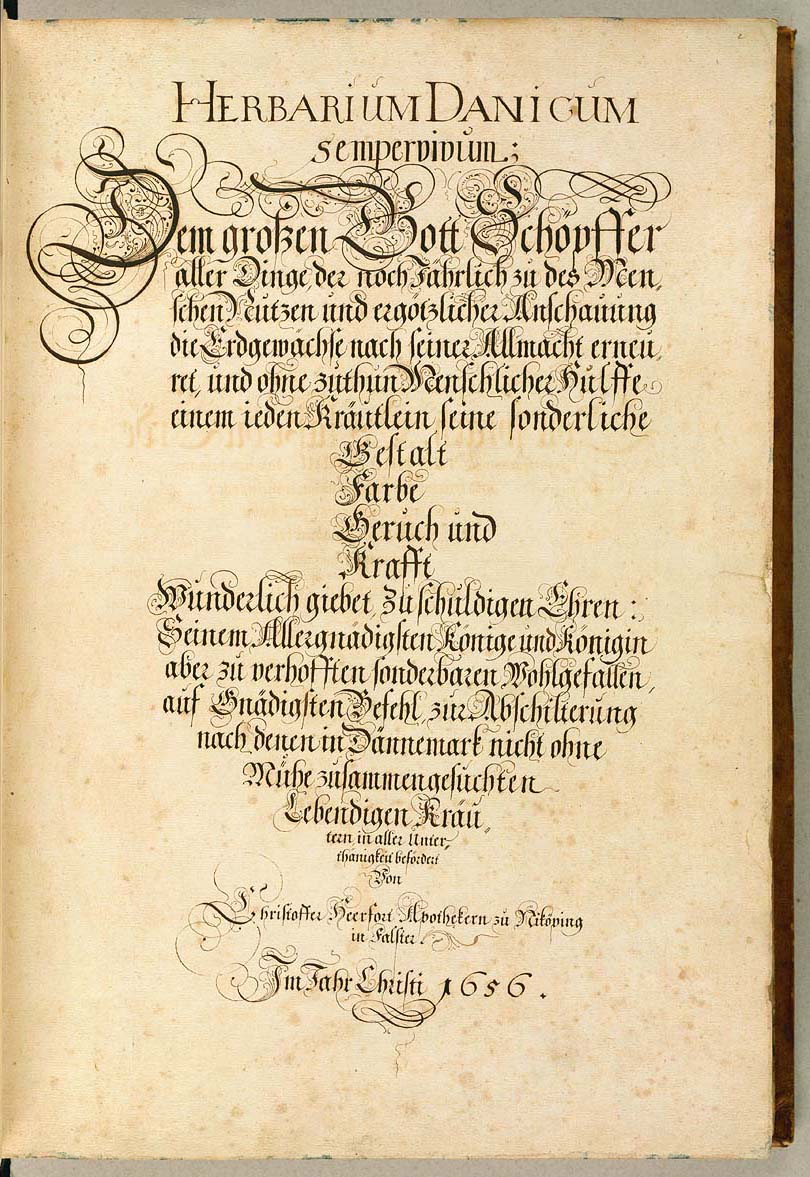 HERBARIUM DANICUM
sempervivum;
Dem großen Gott Schöpffer
aller Dinge der noch Jährlich zu des Men,
schen Nutzen und ergötzlicher Anschauung
die Erdgewächse nach seiner Allmacht erneu,
ret, und ohne zuthun Menschlicher Hulffe
einem ieden Kräutlein seine sonderliche
Gestalt
Farbe
Geruch und
Krafft
Wunderlich giebet, Zu schuldigen Ehren:
Seinem Allergnädigsten Könige und Königin
aber zu verhofften sonderbaren Wohlgefallen,
auf Gnädigsten Befehl, zur Abschilierung
nach denen in Dännemark nicht ohne
Mühe zusammengesuchten
Lebendigen Kräu,
tern in aller Unter,
thänigkeit befördert
Von
Christoffer Heerfort Apothekern zu Niköping
in Falster.
Im Jahr Christi 1656.
2